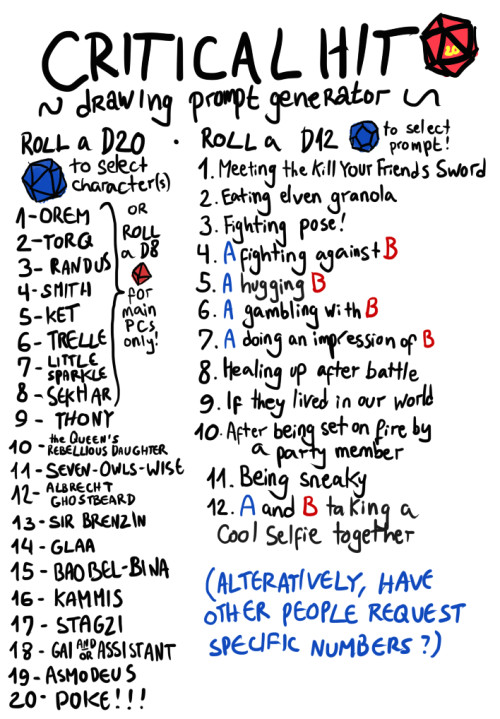 CRITICAL HIT
20
~ drawing prompt generator ~
ROLL a D20 .
to select
character(s)
1-OREM
2-TORQ
3- RANDUS
4-SMITH
5-KET
6- TRELLE
7- LITTLE
SPARKLE
8- SEKHAR
OR
ROLL
a D8
for
main
PCs
only!
9 - THONY
10 - the QUEEN'S
REBELLIOUS DAUGHTER
11-SEVEN-OWLS-WISE
12- ALBRECHT
GHOSTBEARD
13-SIR BRENZIN
14 - GLAA
15 - BAOBEL-BINA
16 - KAMMIS
17 - STAGZI
18 - GAI AND OR ASSISTANT
19-ASMODEUS
20- POKE!!!
ROLL a D12
to select
prompt!
1. Meeting the Kill Your Friends Sword
2. Eating elven granola
3. Fighting pose!
4. A fighting against B
5. A hugging B
6. A gambling with B
7. A doing an impression of B
8. Healing up after battle
9. If they lived in our world
10. After being set on fire by
a party member
11. Being sneaky
12. A and B taking a
Cool Selfie together
(ALTERATIVELY, HAVE
OTHER PEOPLE REQUEST
SPECIFIC NUMBERS?)